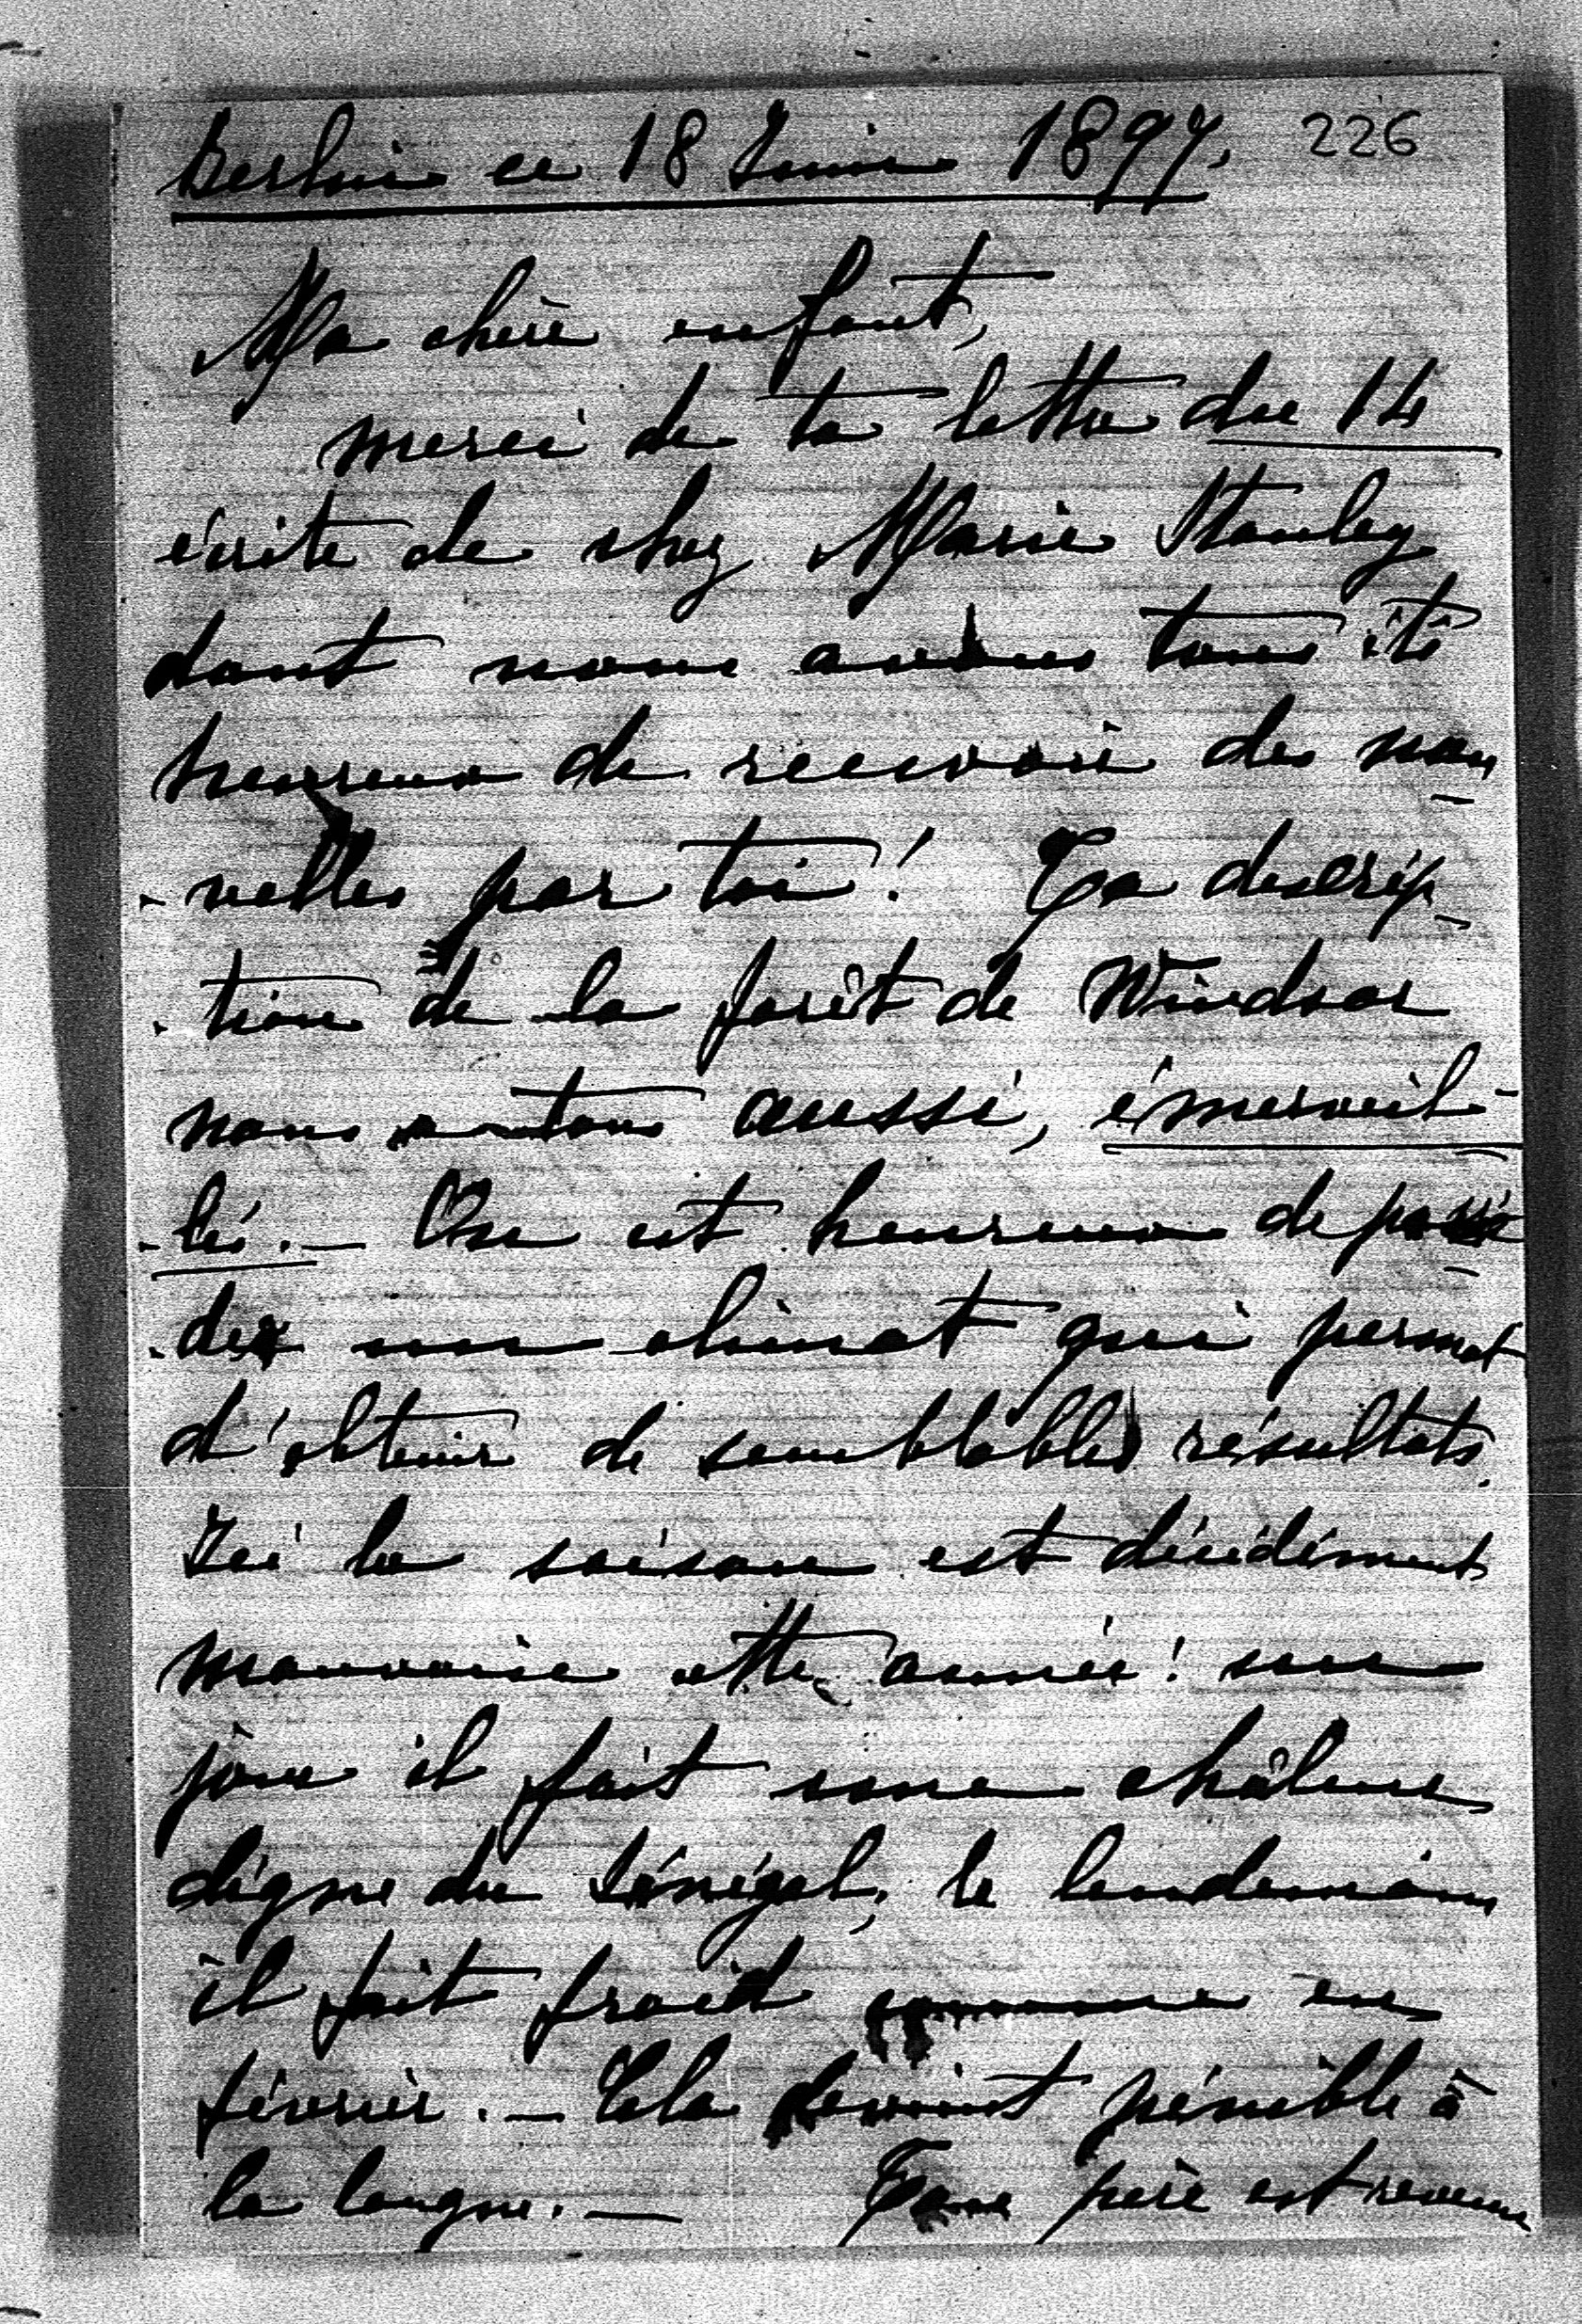 Berlin ce 18 Juin 1897. 226
Ma chère enfant,
merci de ta lettre du 14
écrite de chez Marie Stanley
dont nous avons tous été
heureux de recevoir des nou-
-velles par toi! Ta descrip-
-tion de la forêt de Windsor
nous a tous aussi, émerveil-
-lés. — On est heureux de possé-
-der un climat qui permet
d'obtenir de semblables résultats.
Ici la saison est décidément
mauvaise cette année! un
jour il fait une châleur
digne du Sénégal, le lendemain
il fait froid comme en
février. — Cela devient pénible à
la longue. — Ton père est revenu